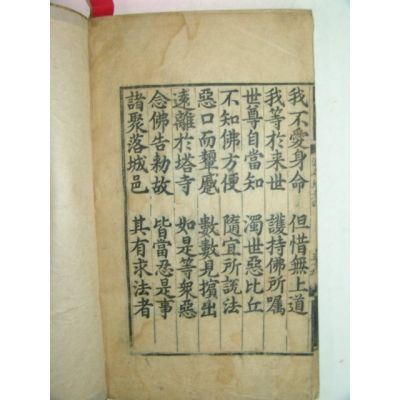 我不愛身命　但惜無上道
我等於來世　護持佛所囑
世尊自當知　濁世惡比丘
不知佛方便　隨宜所說法
惡口而顰蹙　數數見擯出
遠離於塔寺　如是等衆惡
念佛告勅故　皆當忍是事
諸聚落城邑　其有求法者